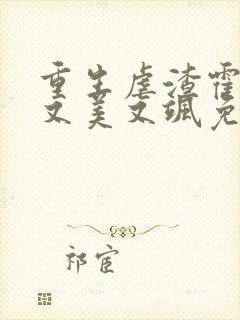 重生虐渣霍
又美又飒免
祁宦